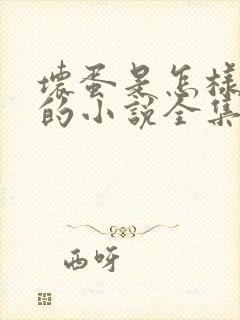 壞蛋是怎樣
的小說全集
西呀